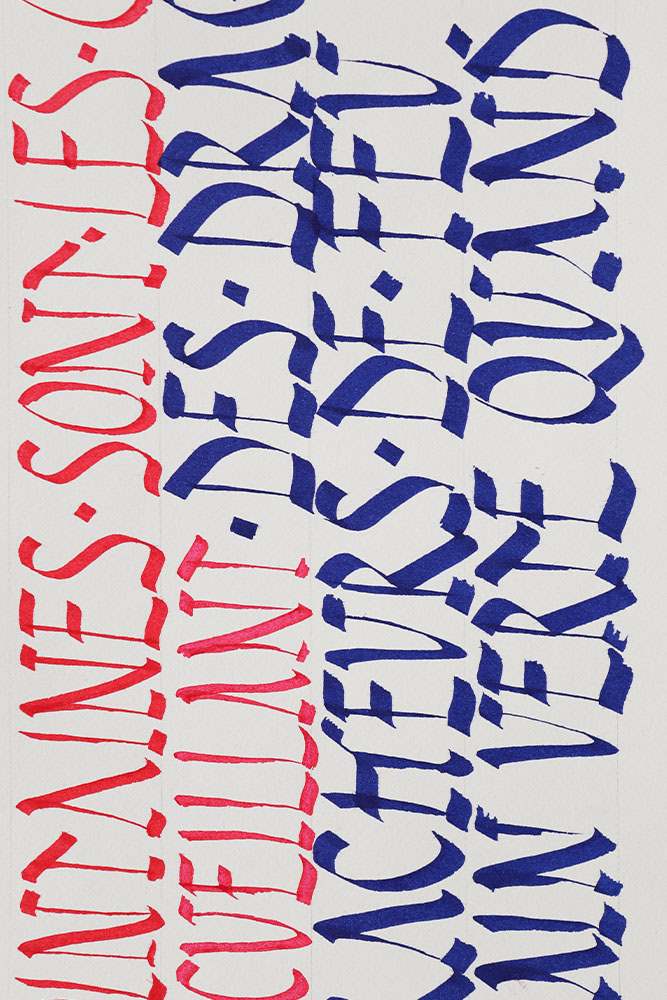 INTAINES·SONT·LES·C
CUEILLANT·DES·DRAG
RACHEURS·DE·FEU
AIN VERTE QUAND